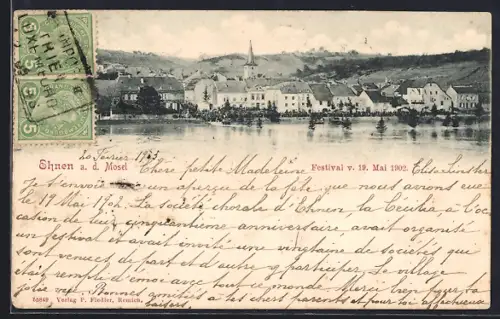 5 5
5 5
Ehnen a. d. Mosel
Festival v. 19. Mai 1902.
20 Février 1903
Chère petite Madeleine
Je t'envoie un aperçu de la fête que nous avions eue
le 19 Mai 1902. La société chorale d'Ehnen, la Cécilia, à l'oc-
cation de leur cinquantième anniversaire, avait organisé
un festival et avait invité une vingtaine de sociétés qui
sont venues de part et d'autre y participer. Le village
était rempli d'émoi avec tout ce monde. Merci bien pour ta
jolie vue. Bonnes amitiés à tes chers parents et pour toi affectueux
baisers.
Verlag P. Fiedler, Remich.